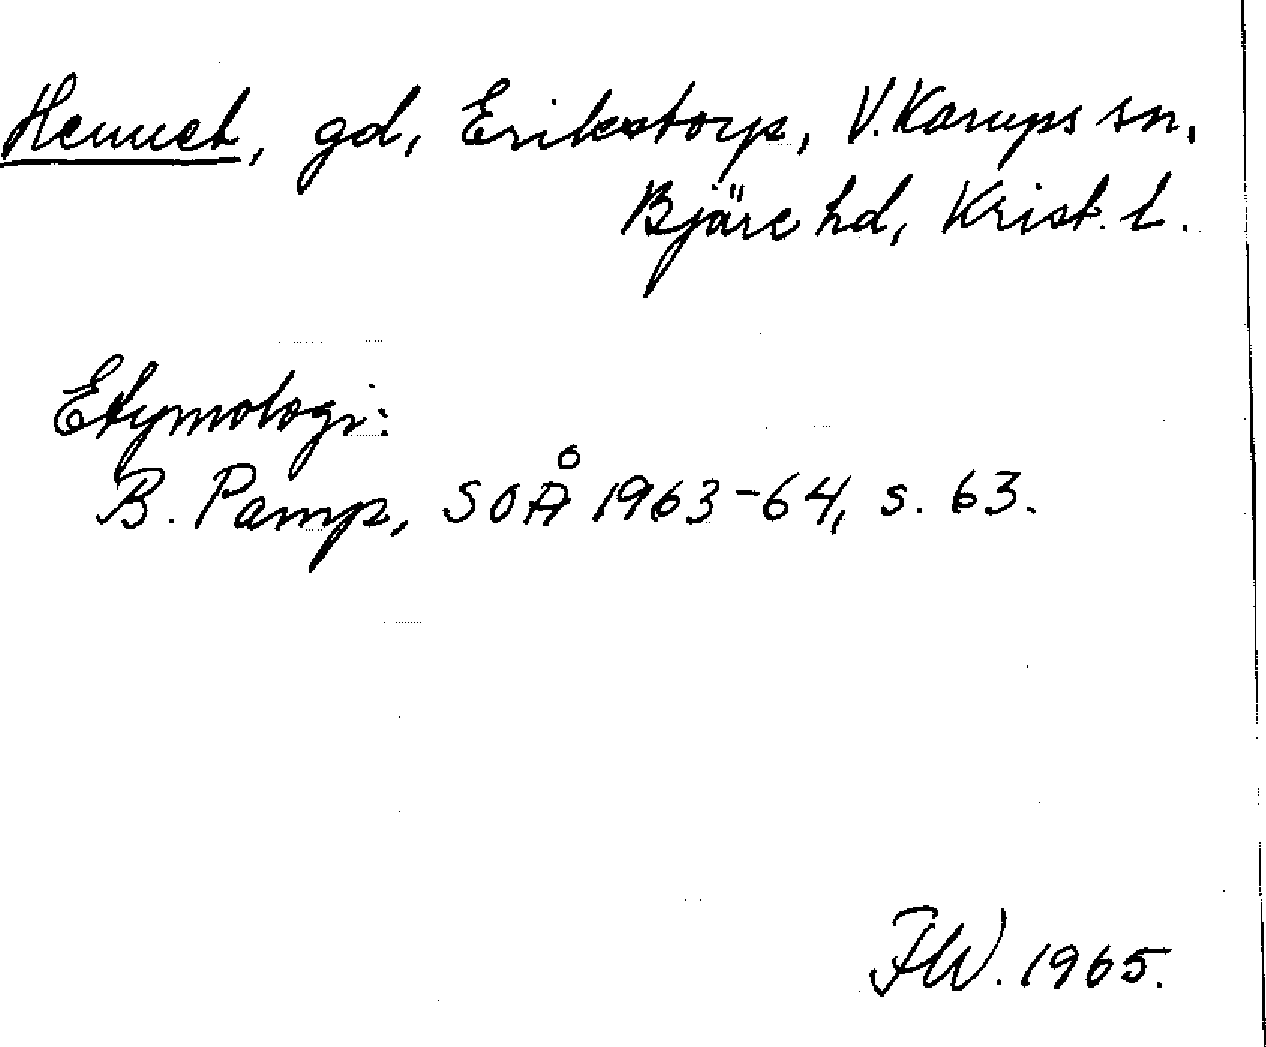 Hemmet, gd, Erikstorp, V. Karups sn,
Bjäre hd, Krist. l.
Etymologi:
B. Pamp, SOÅ 1963-64, s. 63.
FW. 1965.